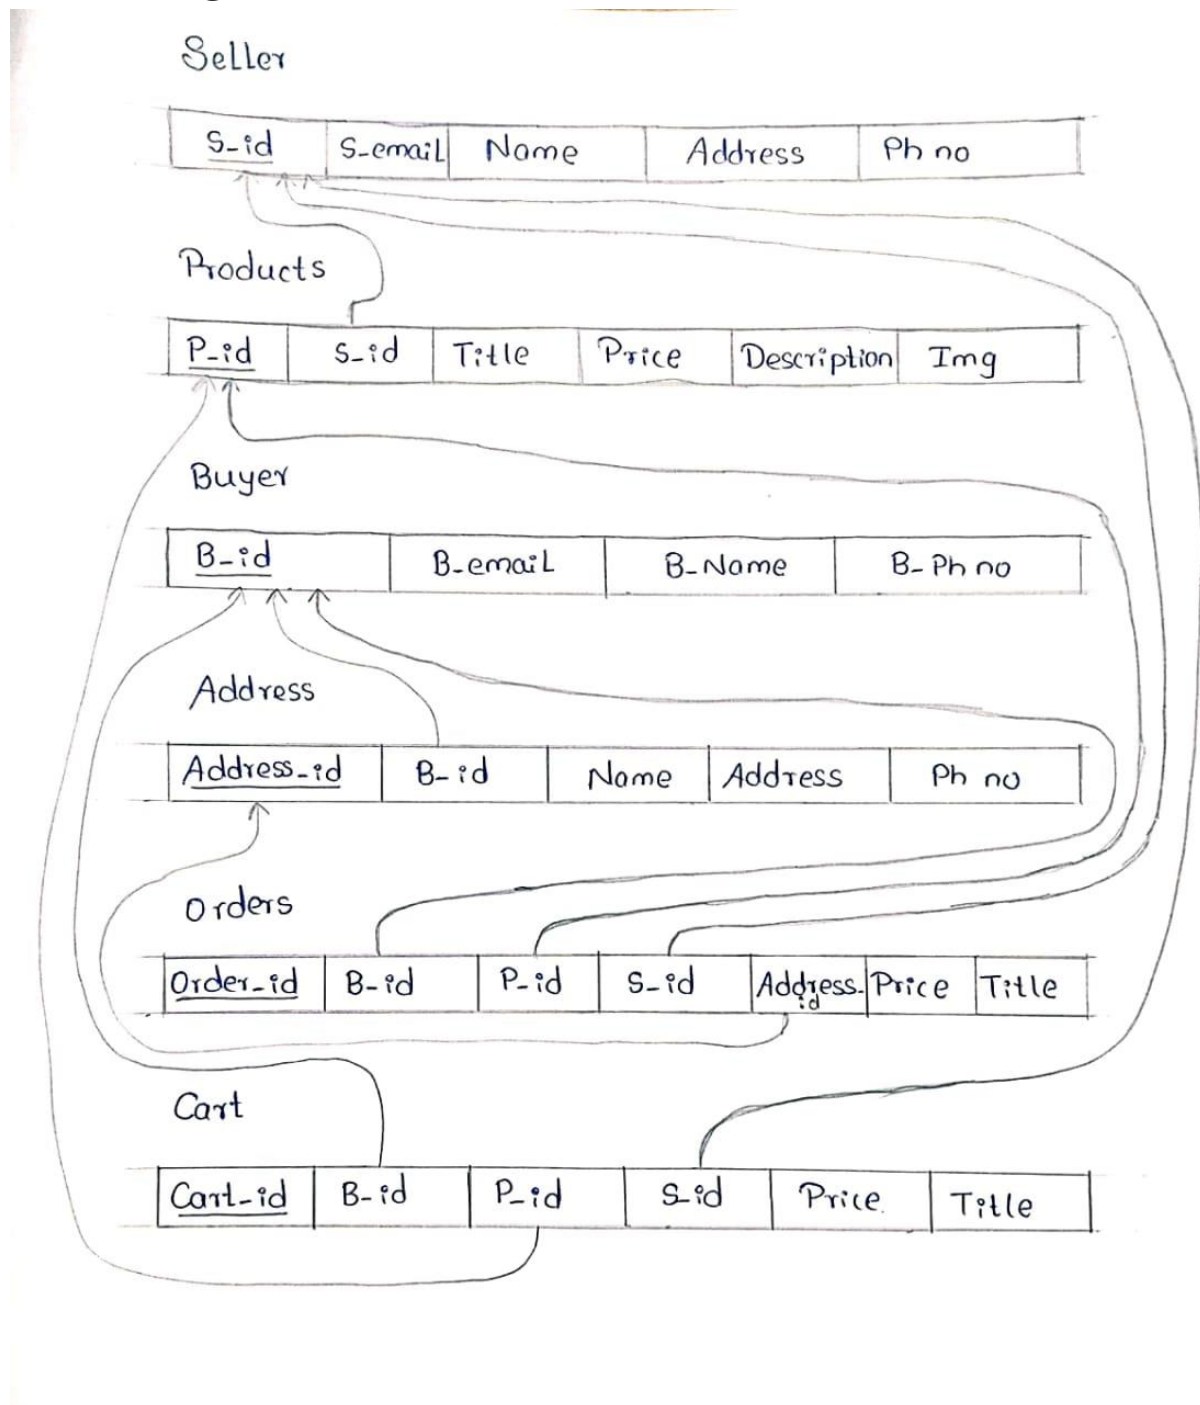 Seller
S-id S-email Name Address Ph no
Products
P-id S-id Title Price Description Img
Buyer
B-id B-email B-Name B-Ph no
Address
Address-id B-id Name Address Ph no
Orders
Order-id B-id P-id S-id Address-id Price Title
Cart
Cart-id B-id P-id S-id Price Title